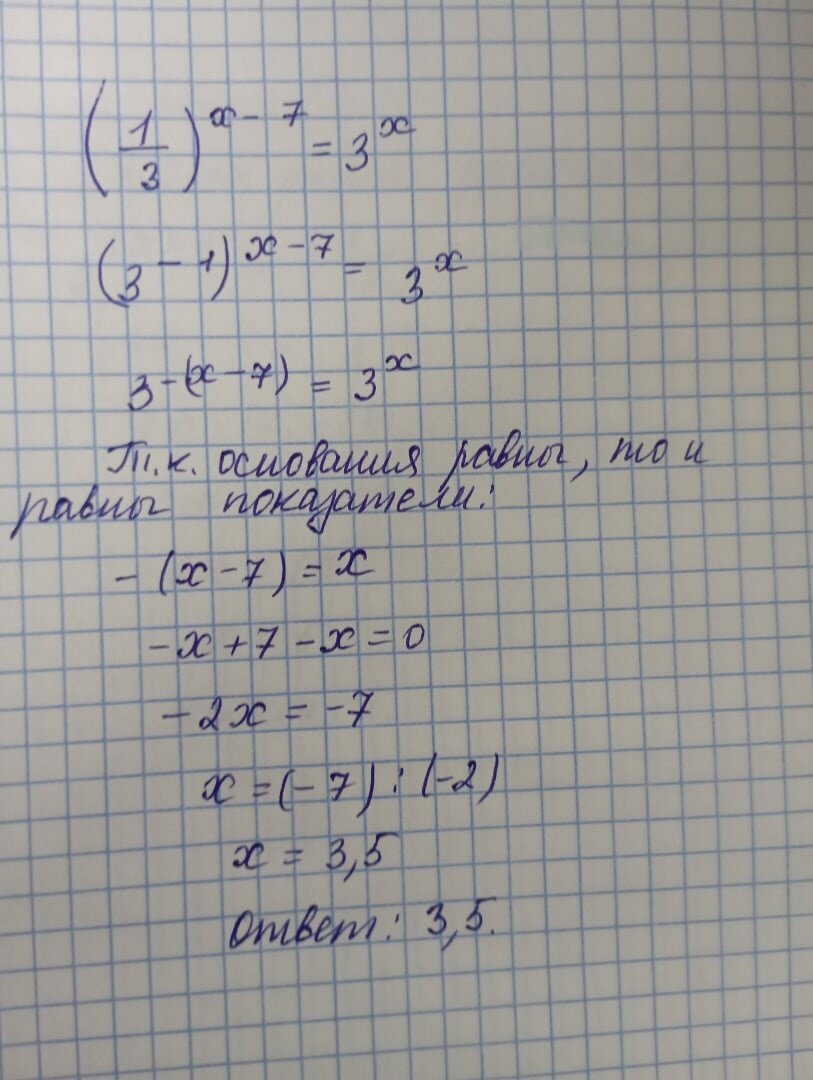 (1/3)^(x-7) = 3^x
(3^-1)^(x-7) = 3^x
3^-(x-7) = 3^x
Т.к. основания равны, то и
равны показатели:
-(x-7)=x
-x+7-x=0
-2x=-7
x=(-7):(-2)
x=3,5
Ответ: 3,5.